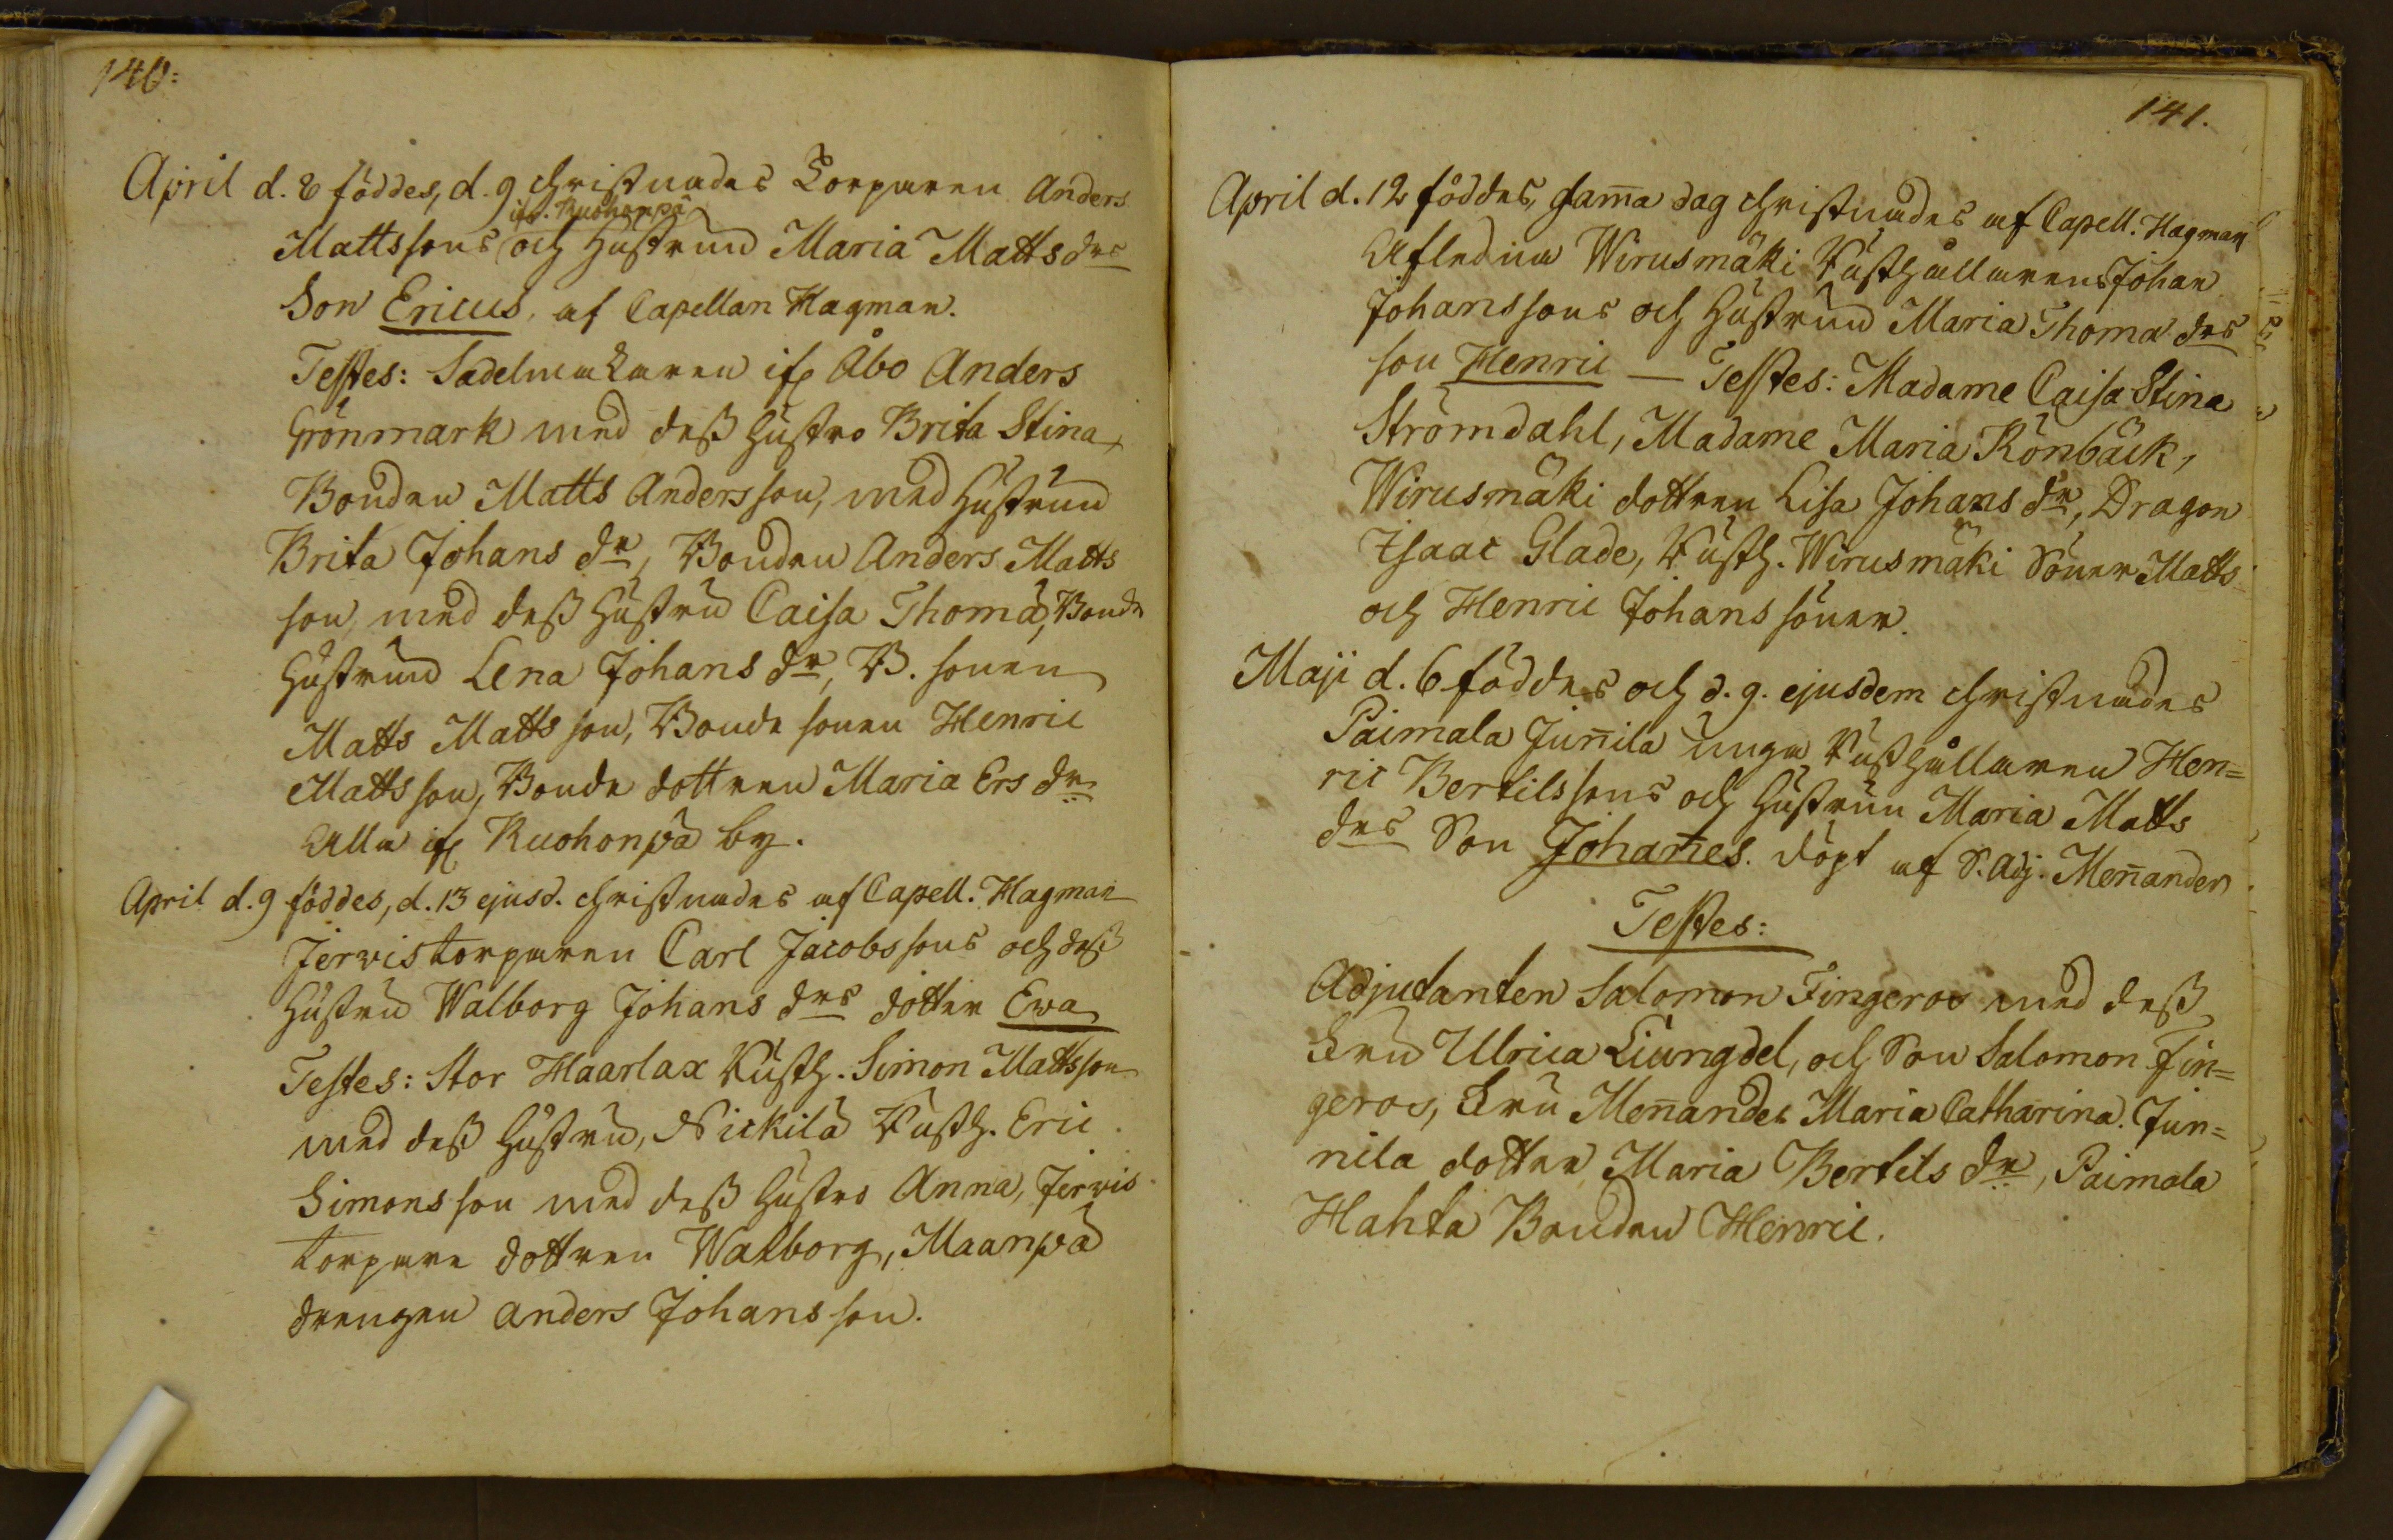 140:
April d. 8 föddes, d. 9 christnades Torparen Anders
ifr. Ruohonpä
Mattssons och Hustrun Maria Matts drs
Son Ericus, af Capellan Hagman.
Testes: Sadelmakaren ifr Åbo Anders
Grönmark med dess Hustro Brita Stina,
Bonden Matts Andersson, med Hustrun
Brita Johans dr, Bonden Anders Matts
son, med dess Hustru Caisa Thomæ, Bonde
Hustrun Lena Johans dr, B. sonen
Matts Mattsson, Bonde sonen Henric
Mattsson, Bonde dottren Maria Ers dr
Alla ifr Ruohonpä by.
April d. 9 föddes, d. 13 ejusd. christnades af Capell. Hagman
Jervis torparen Carl Jacobssons och dess
Hustru Walborg Johans drs dotter Ewa
Testes: Stor Haarlax Rusth. Simon Mattsson
med dess Hustru, Nickilä Rusth. Eric
Simonsson med dess Hustro Anna, Jervis
torpare dottren Walborg, Maanpä
drengen Anders Johansson.
141.
April d. 12 föddes, sam̅a dag christnades af Capell. Hagman
Afledna Wirusmäki Rusthållarens Johan
Johanssons och Hustrun Maria Thomæ drs
son Henric — Testes: Madame Caisa Stina
Strömdahl, Madame Maria Rönbäck,
Wirusmäki dottren Lisa Johans dr, Dragon
Isaac Glade, Rusth. Wirusmäki Söner Matts
och Henric Johans söner.
Maji d. 6 föddes och d. 9. ejusdem christnades
Paimala Jun̅ila unga Rusthållaren Hen=
ric Bertilssons och Hustrun Maria Matts
drs Son Johan̅es. döpt af S. Adj. Men̅ander
Testes:
Adjutanten Salomon Fingeroos med dess
Fru Ulrica Liungdel, och Son Salomon Fin=
geroos, Fru Men̅ander Maria Catharina. Jun=
nila dotter Maria Bertils dr, Paimala
Hahta Bonden Henric.